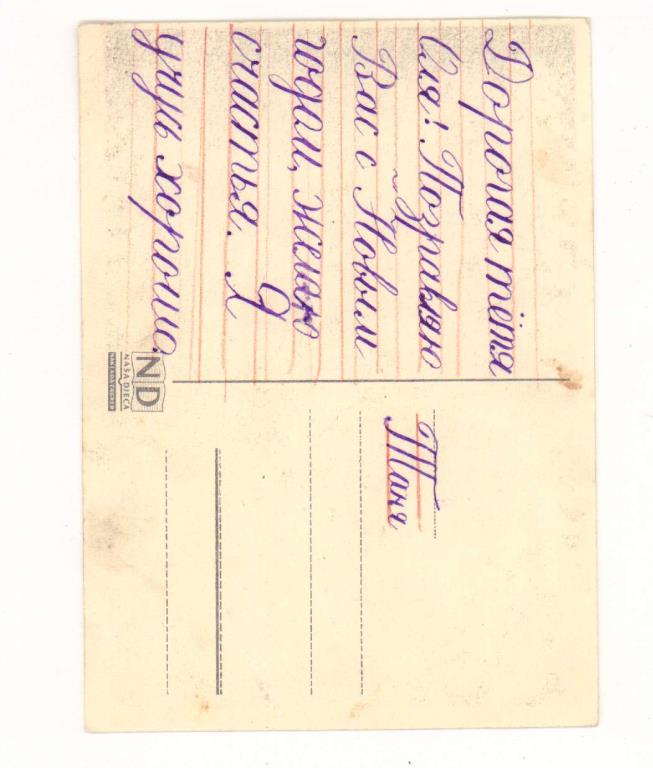 Дорогая тётя
Оля! Поздравляю
Вас с Новым
годом, желаю
счастья. Я
учусь хорошо.
Таня
ND
NAŠA DJECA